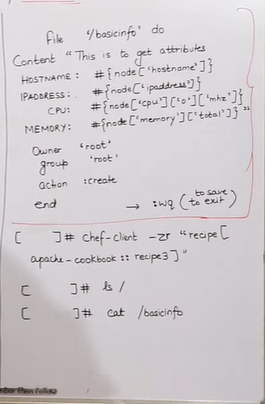 file '/basicinfo' do
Content "This is to get attributes
HOSTNAME: #{node['hostname']}
IPADDRESS: #{node['ipaddress']}
CPU: #{node['cpu']['0']['mhz']}
MEMORY: #{node['memory']['total']}"
Owner 'root'
group 'root'
action :create
end → :wq (to save to exit)
[ ]# chef-client -zr "recipe[
apache-cookbook :: recipe3]"
[ ]# ls /
[ ]# cat /basicinfo